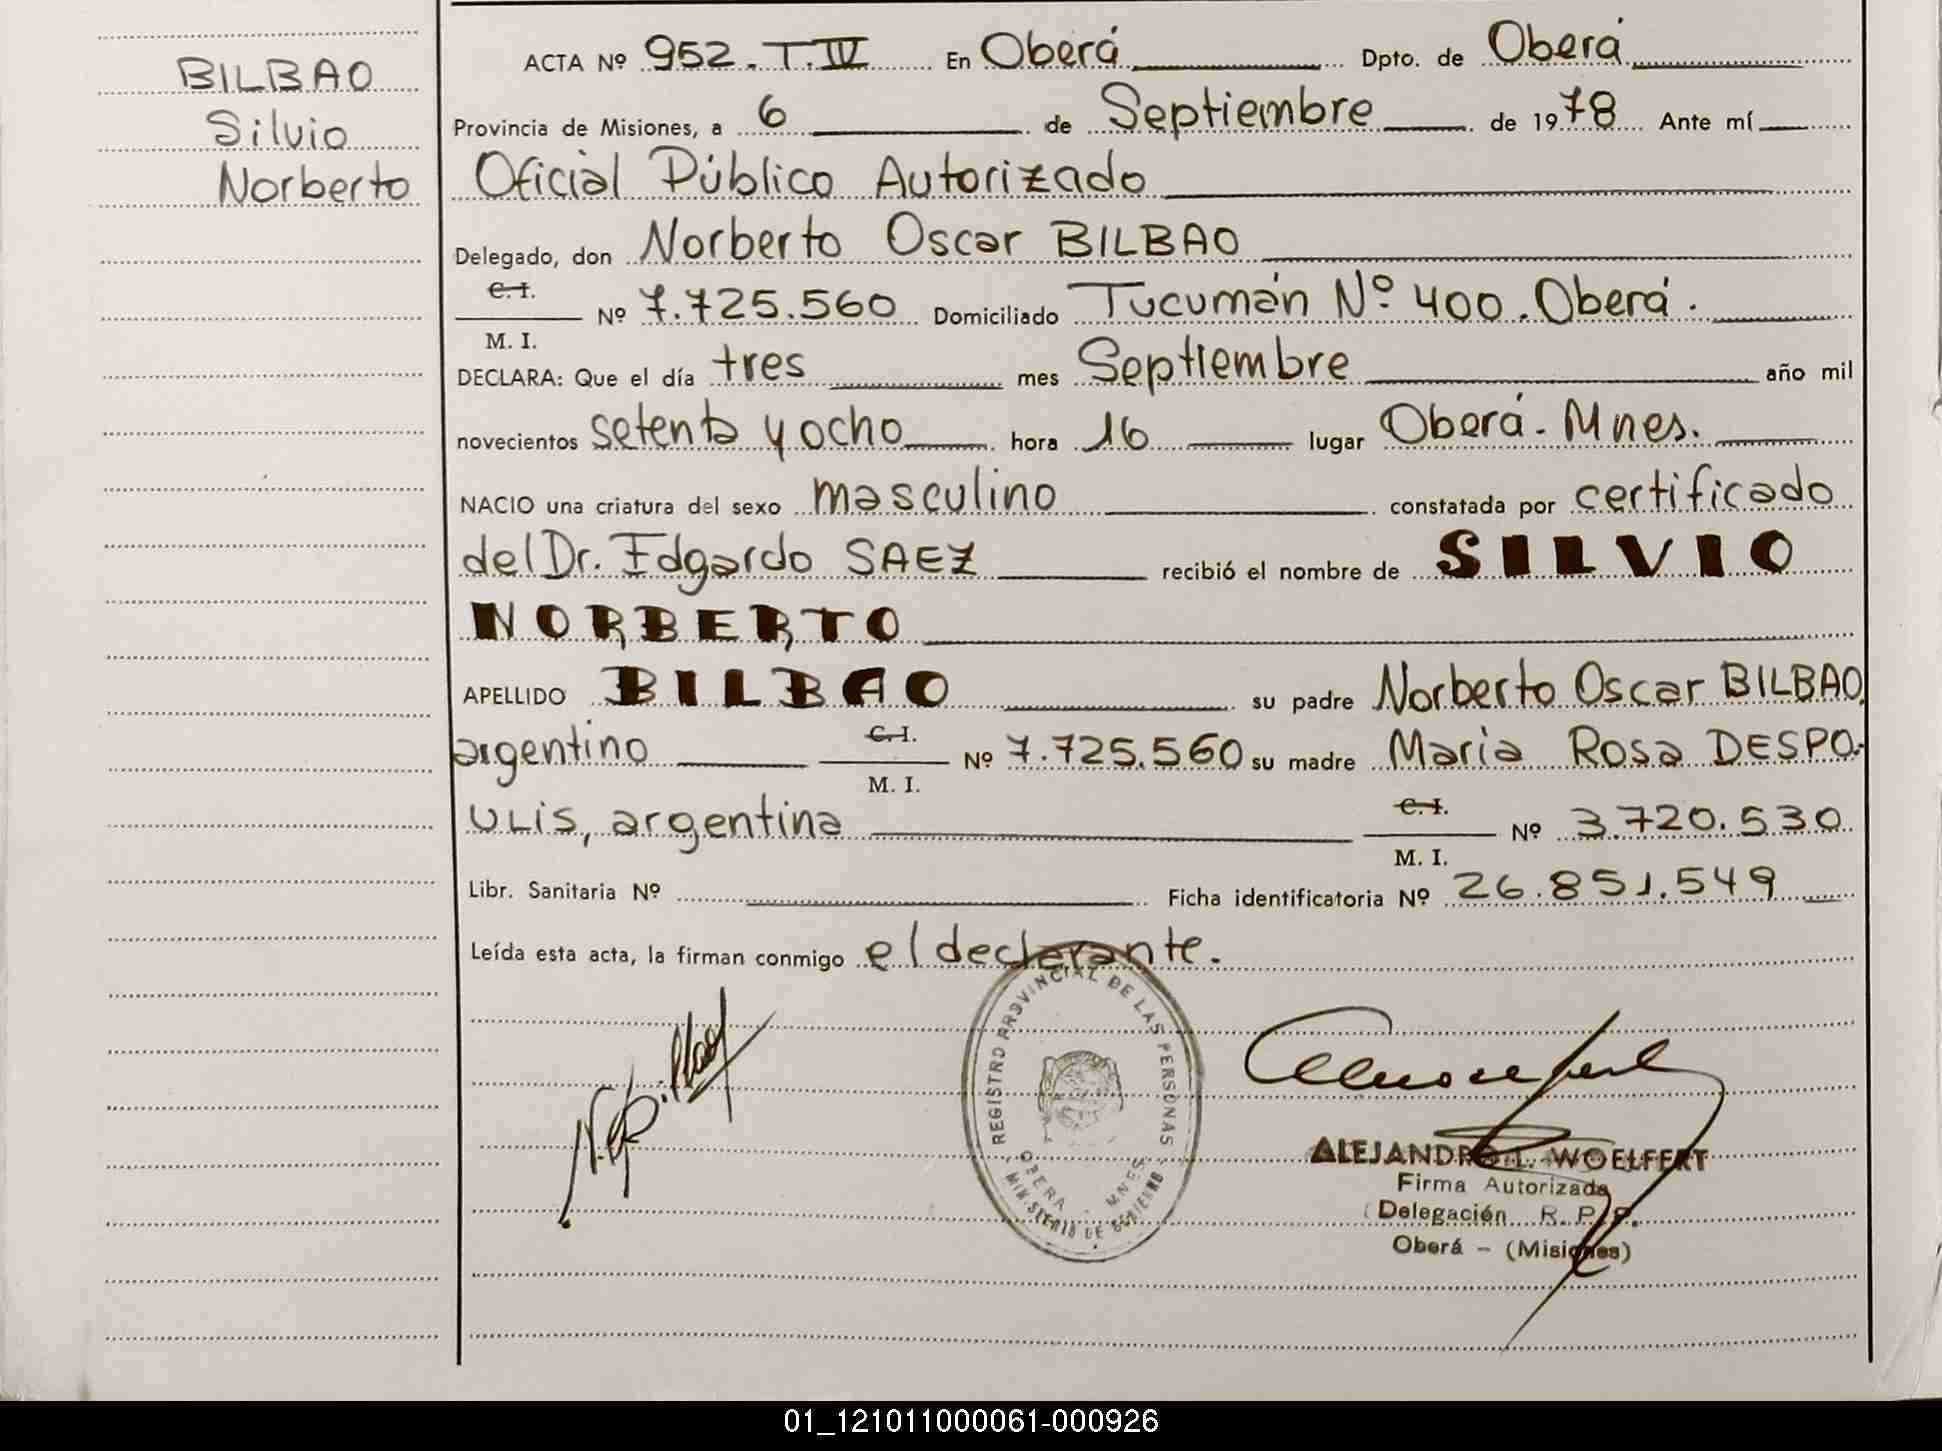 BILBAO
Silvio
Norberto
ACTA Nº 952. T. IV En Oberá Dpto. de Oberá
Provincia de Misiones, a 6 de Septiembre de 1978 Ante mí
Oficial Público Autorizado
Delegado, don Norberto Oscar BILBAO
C. I.
M. I. Nº 7.725.560 Domiciliado Tucumán Nº 400. Oberá.
DECLARA: Que el día tres mes Septiembre año mil
novecientos setenta y ocho hora 16 lugar Oberá - Mnes.
NACIO una criatura del sexo masculino constatada por certificado
del Dr. Edgardo SAEZ recibió el nombre de SILVIO
NORBERTO
APELLIDO BILBAO su padre Norberto Oscar BILBAO,
argentino C. I. M. I. Nº 7.725.560 su madre Maria Rosa DESPO-
ULIS, argentina C. I. M. I. Nº 3.720.530
Libr. Sanitaria Nº Ficha identificatoria Nº 26.851.549
Leída esta acta, la firman conmigo el declarante.
REGISTRO PROVINCIAL DE LAS PERSONAS
OBERA - MNES.
MINISTERIO DE GOBIERNO
ALEJANDRO L. WOELFERT
Firma Autorizada
Delegación R. P. P.
Oberá - (Misiones)
01_121011000061-000926